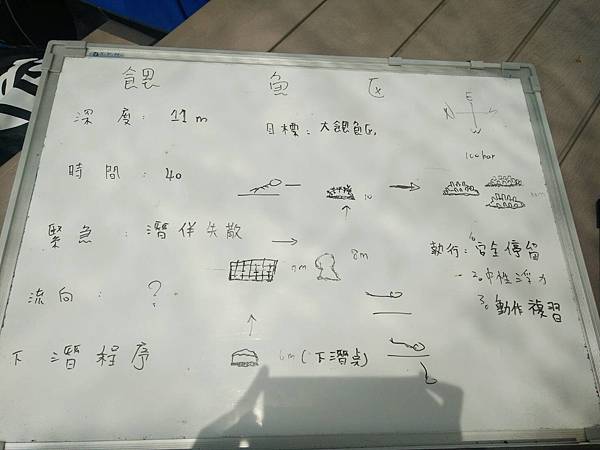 餵 魚 區
深度: 11 m
目標: 大餵魚區
N E
100 bar
時間: 40
10
緊急: 潛伴失散
8m
執行: 1。安全停留
2。中性浮力
3。動作複習
流向: ?
下潛程序
6m (下潛點)